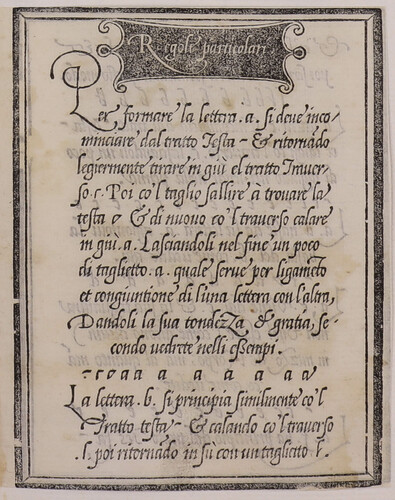 Regole particolari
Per formare la lettera .a. si deve inco-
minciare dal tratto Testa - & ritornãdo
legiermente tirare in giù el tratto Trauer-
so .ɾ. Poi co'l taglio sallire à trouare la
testa & di nuouo co'l trauerso calare
in giù .a. Lasciandoli nel fine un poco
di taglietto .a. quale serue per ligamẽto
et congiuntione di l'una lettera con l'altra,
Dandoli la sua tondezza, & gratia, se
condo uedrete nelli essempi.
a a a a a a a a
La lettera .b. si principia similmente co'l
Tratto testa - & calando co'l trauerso
.l. poi ritornãdo in sù con un taglietto l.